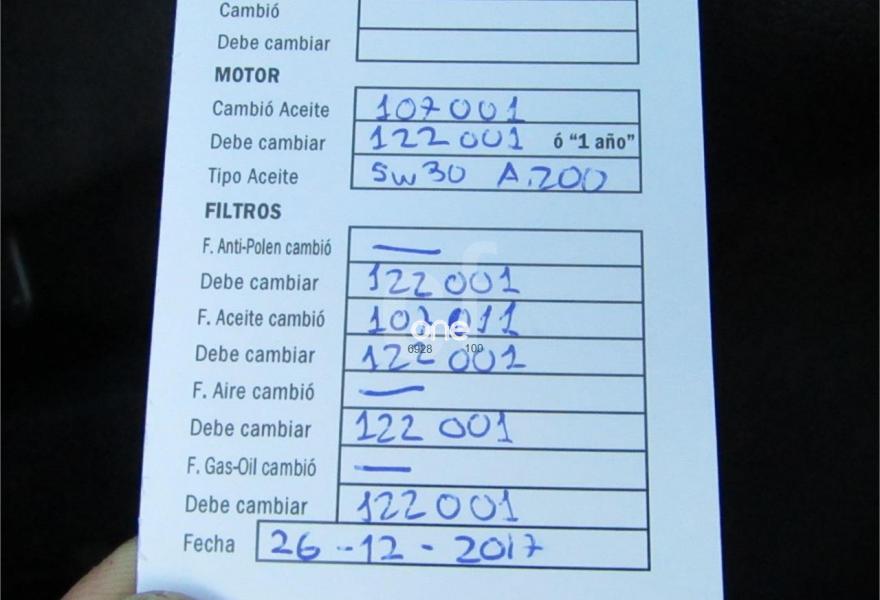 Cambió
Debe cambiar
MOTOR
Cambió Aceite 107001
Debe cambiar 122001 ó "1 año"
Tipo Aceite 5w30 A.200
FILTROS
F. Anti-Polen cambió —
Debe cambiar 122001
F. Aceite cambió
one
Debe cambiar 122001
6928 100
F. Aire cambió —
Debe cambiar 122001
F. Gas-Oil cambió —
Debe cambiar 122001
Fecha 26-12-2017